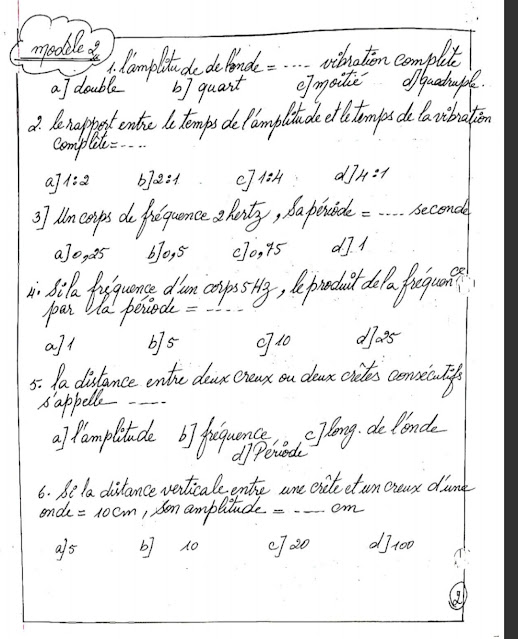 modèle 2
1. l'amplitude de l'onde = .... vibration complète
a] double b] quart c] moitié d] quadruple.
2. le rapport entre le temps de l'amplitude et le temps de la vibration
complète = ....
a] 1:2 b] 2:1 c] 1:4 d] 4:1
3] Un corps de fréquence 2 hertz, Sa période = .... seconde
a] 0,25 b] 0,5 c] 0,75 d] 1
4. Si la fréquence d'un corps 5 Hz, le produit de la fréquence
par la période = ....
a] 1 b] 5 c] 10 d] 25
5. la distance entre deux creux ou deux crêtes consécutifs
s'appelle ....
a] l'amplitude b] fréquence c] long. de l'onde
d] Période
6. Si la distance verticale entre une crête et un creux d'une
onde = 10 cm, son amplitude = .... cm
a] 5 b] 10 c] 20 d] 100
2